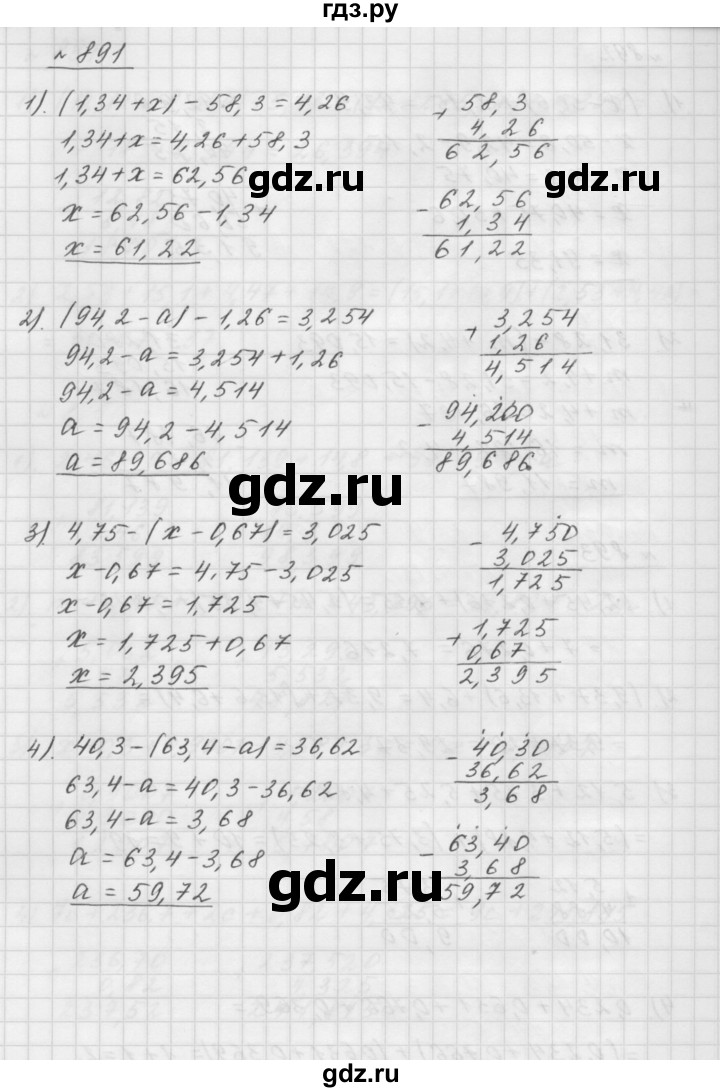 гдз.ру
№ 891
1). (1,34+x) - 58,3 = 4,26
1,34+x = 4,26+58,3
1,34+x = 62,56
x = 62,56 - 1,34
x = 61,22
+ 58,3
4,26
62,56
- 62,56
1,34
61,22
gdz.ru
2). (94,2 - a) - 1,26 = 3,254
94,2 - a = 3,254+1,26
94,2 - a = 4,514
a = 94,2 - 4,514
a = 89,686
+ 3,254
1,26
4,514
- 94,200
4,514
89,686
gdz.ru
3). 4,75 - (x - 0,67) = 3,025
x - 0,67 = 4.75 - 3,025
x - 0,67 = 1,725
x = 1,725+0,67
x = 2,395
- 4,750
3,025
1,725
+ 1,725
0,67
2,395
4). 40,3 - (63,4 - a) = 36,62
63,4 - a = 40,3 - 36,62
63,4 - a = 3,68
a = 63,4 - 3,68
a = 59,72
- 40,30
36,62
3,68
- 63,40
3,68
59,72
gdz.ru